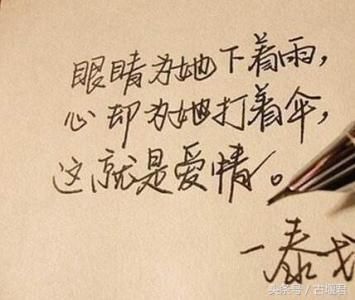 眼睛为她下着雨，
心却为她打着伞，
这就是爱情。
一泰戈
头条号/古堰君